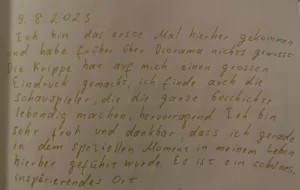 9. 8 2023
Ich bin das erste Mal hierher gekommen
und habe früher über Diorama nichts gewusst.
Die Krippe hat auf mich einen grossen
Eindruck gemacht, ich finde auch die
Schauspieler, die die ganze Geschichte
lebendig machen, hervorragend. Ich bin
sehr froh und dankbar, dass ich gerade
in dem speziellen Moment in meinem Leben
hierher geführt wurde. Es ist ein schönes,
inspirierendes Ort.